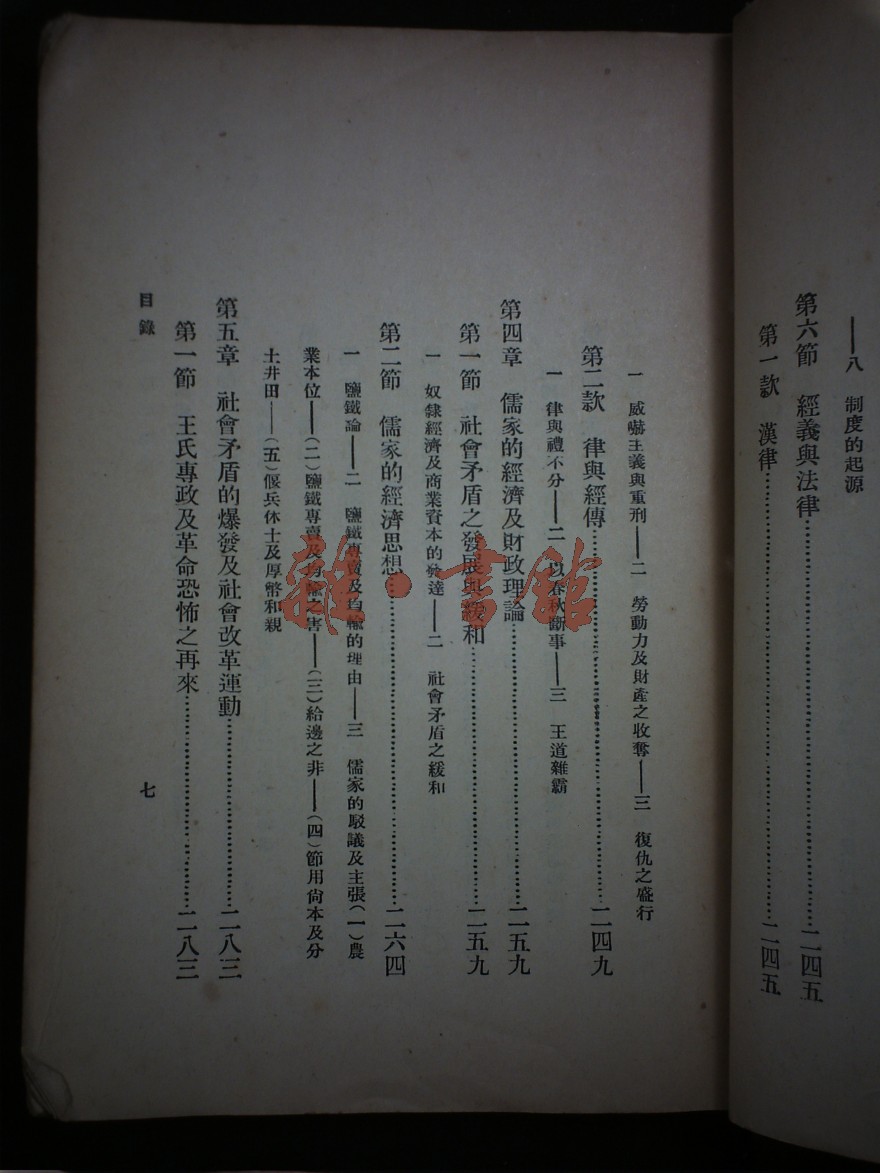 ——八　制度的起源
第六節　經義與法律……二四五
第一款　漢律……二四五
一　威嚇主義與重刑——二　勞動力及財產之收奪——三　復仇之盛行
第二款　律與經傳……二四九
一　律與禮不分——二　以春秋斷事——三　王道雜霸
第四章　儒家的經濟及財政理論……二五九
第一節　社會矛盾之發展與緩和……二五九
一　奴隸經濟及商業資本的發達——二　社會矛盾之緩和
第二節　儒家的經濟思想……二六四
一　鹽鐵論——二　鹽鐵專賣及均輸的理由——三　儒家的駁議及主張（一）農
業本位——（二）鹽鐵專賣及均輸之害——（三）給邊之非——（四）節用尙本及分
土井田——（五）偃兵休士及厚幣和親
第五章　社會矛盾的爆發及社會改革運動……二八三
第一節　王氏專政及革命恐怖之再來……二八三
目錄
七
雜·書館